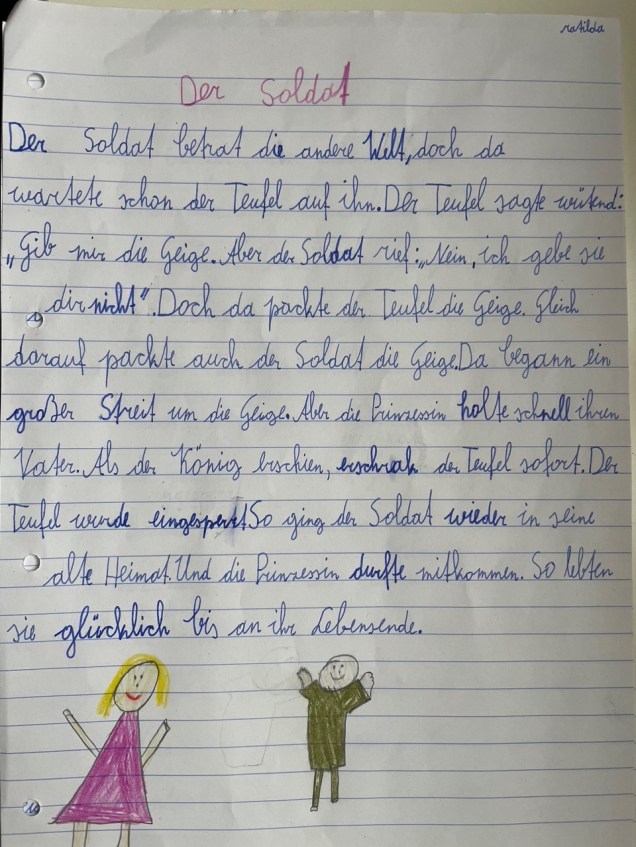 Matilda
Der Soldat
Der Soldat betrat die andere Welt, doch da
wartete schon der Teufel auf ihn. Der Teufel sagte wütend:
„Gib mir die Geige. Aber der Soldat rief: „Nein, ich gebe sie
dir nicht“. Doch da packte der Teufel die Geige. Gleich
darauf packte auch der Soldat die Geige. Da begann ein
großer Streit um die Geige. Aber die Prinzessin holte schnell ihren
Vater. Als der König erschien, erschrak der Teufel sofort. Der
Teufel wurde eingesperrt. So ging der Soldat wieder in seine
alte Heimat. Und die Prinzessin durfte mitkommen. So lebten
sie glücklich bis an ihr Lebensende.